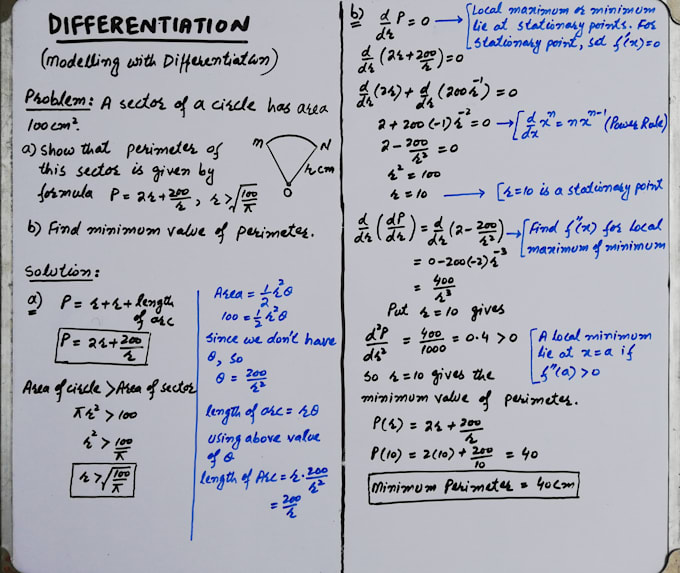 DIFFERENTIATION
(Modelling with Differentiation)
Problem: A sector of a circle has area
100cm².
a) Show that perimeter of
this sector is given by
formula P = 2r + 200/r, r > √(100/π)
M N
r cm
O
b) Find minimum value of perimeter.
Solution:
a) P = r + r + length
of arc
P = 2r + 200/r
Area of circle > Area of sector
πr² > 100
r² > 100/π
r > √(100/π)
Area = 1/2 r²θ
100 = 1/2 r²θ
Since we don't have
θ, so
θ = 200/r²
length of arc = rθ
using above value
of θ
length of Arc = r · 200/r²
= 200/r
b) d/dr P = 0 → [Local maximum or minimum
lie at stationary points. For
stationary point, set f'(x) = 0
d/dr (2r + 200/r) = 0
d/dr (2r) + d/dr (200r⁻¹) = 0
2 + 200(-1)r⁻² = 0 → [d/dx xⁿ = nxⁿ⁻¹ (Power Rule)
2 - 200/r² = 0
r² = 100
r = 10 → [r = 10 is a stationary point
d/dr (dP/dr) = d/dr (2 - 200/r²) → [Find f''(x) for local
maximum of minimum
= 0 - 200(-2)r⁻³
= 400/r³
Put r = 10 gives
d²P/dr² = 400/1000 = 0.4 > 0 [A local minimum
lie at x = a if
f''(a) > 0
So r = 10 gives the
minimum value of perimeter.
P(r) = 2r + 200/r
P(10) = 2(10) + 200/10 = 40
Minimum Perimeter = 40cm